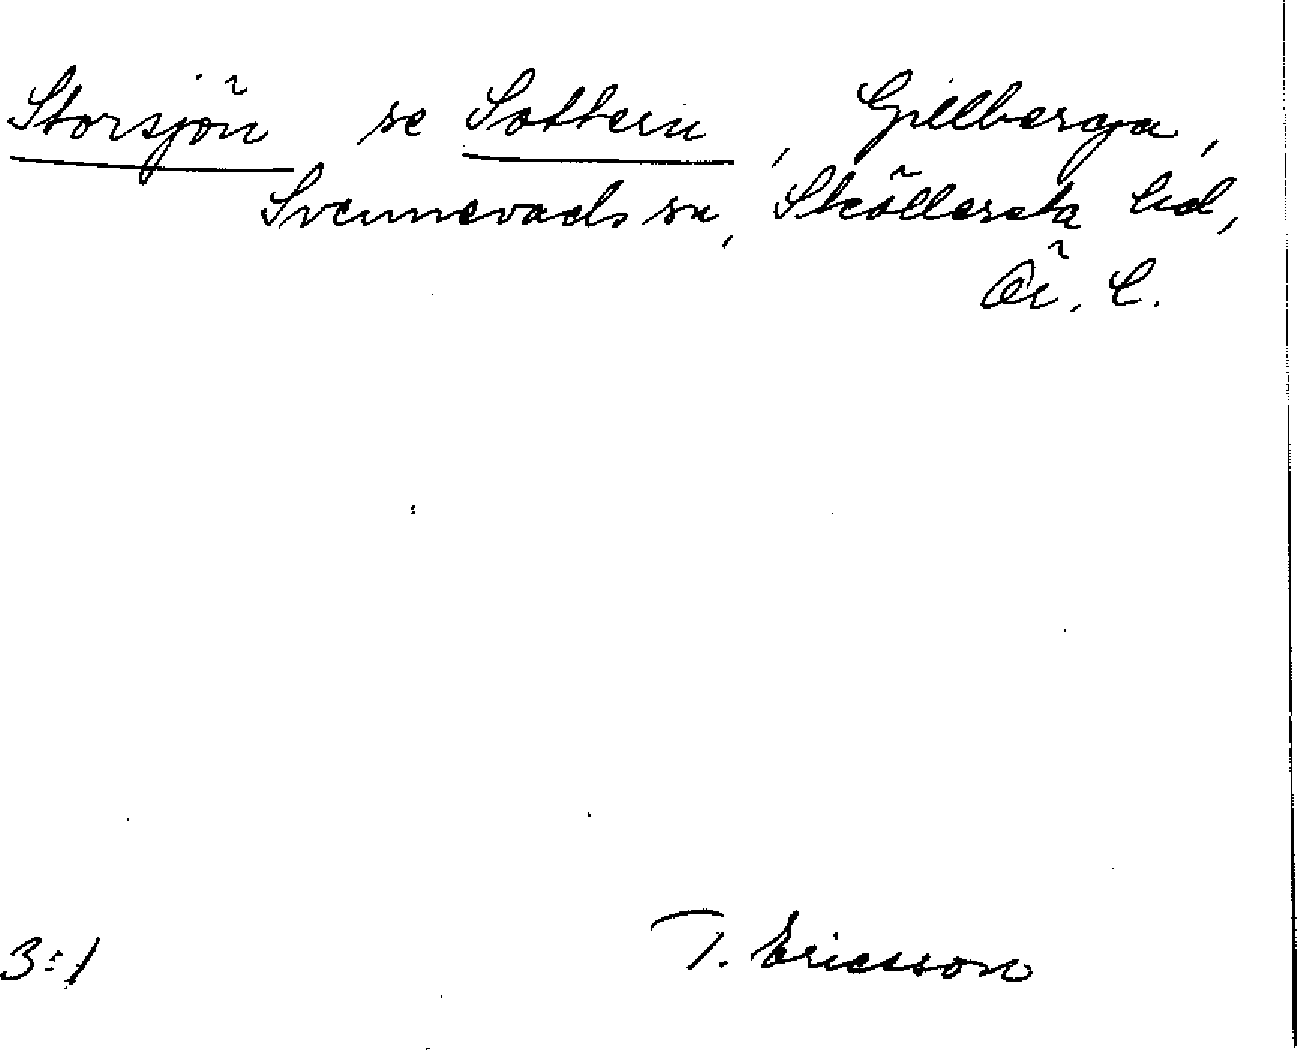 Storsjön se Sottern, Gillberga,
Svennevads sn, Sköllersta hd,
Ör. l.
3:1 T. Ericsson